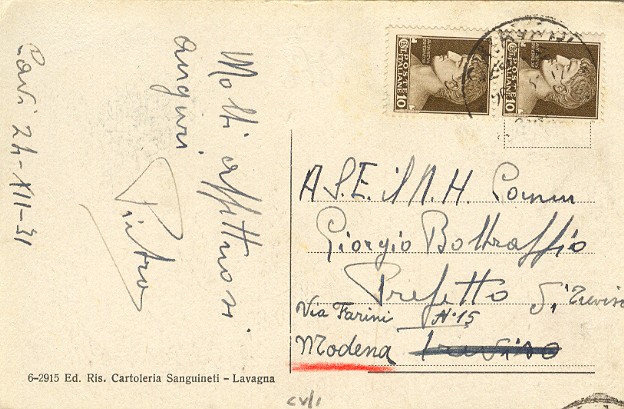 Cavi 24-XII-31
Molti affettuosi
auguri
Pietro
POSTE
ITALIANE
10
POSTE
ITALIANE
10
A S. E. il N. H. Comm
Giorgio Boltraffio
Prefetto di Treviso
Via Farini N. 15
Modena Treviso
6-2915 Ed. Ris. Cartoleria Sanguineti - Lavagna
CV/1